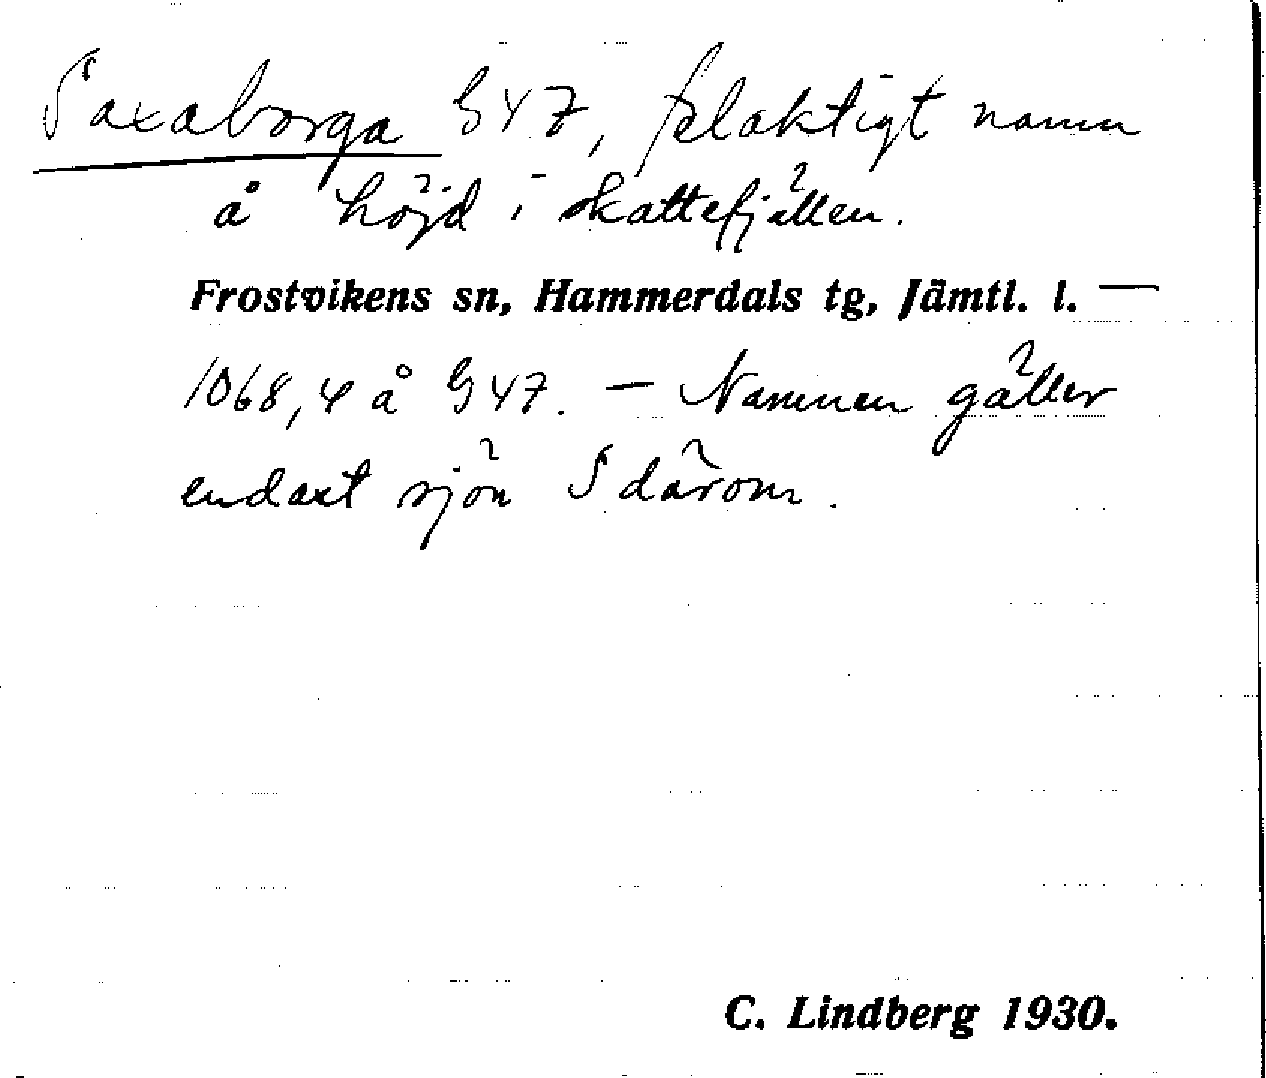 Saxaborga G47, felaktigt namn
å höjd i skattefjällen.
Frostvikens sn, Hammerdals tg, Jämtl. l. —
1068,4 å G47. — Namnen gäller
endast sjön S därom.
C. Lindberg 1930.